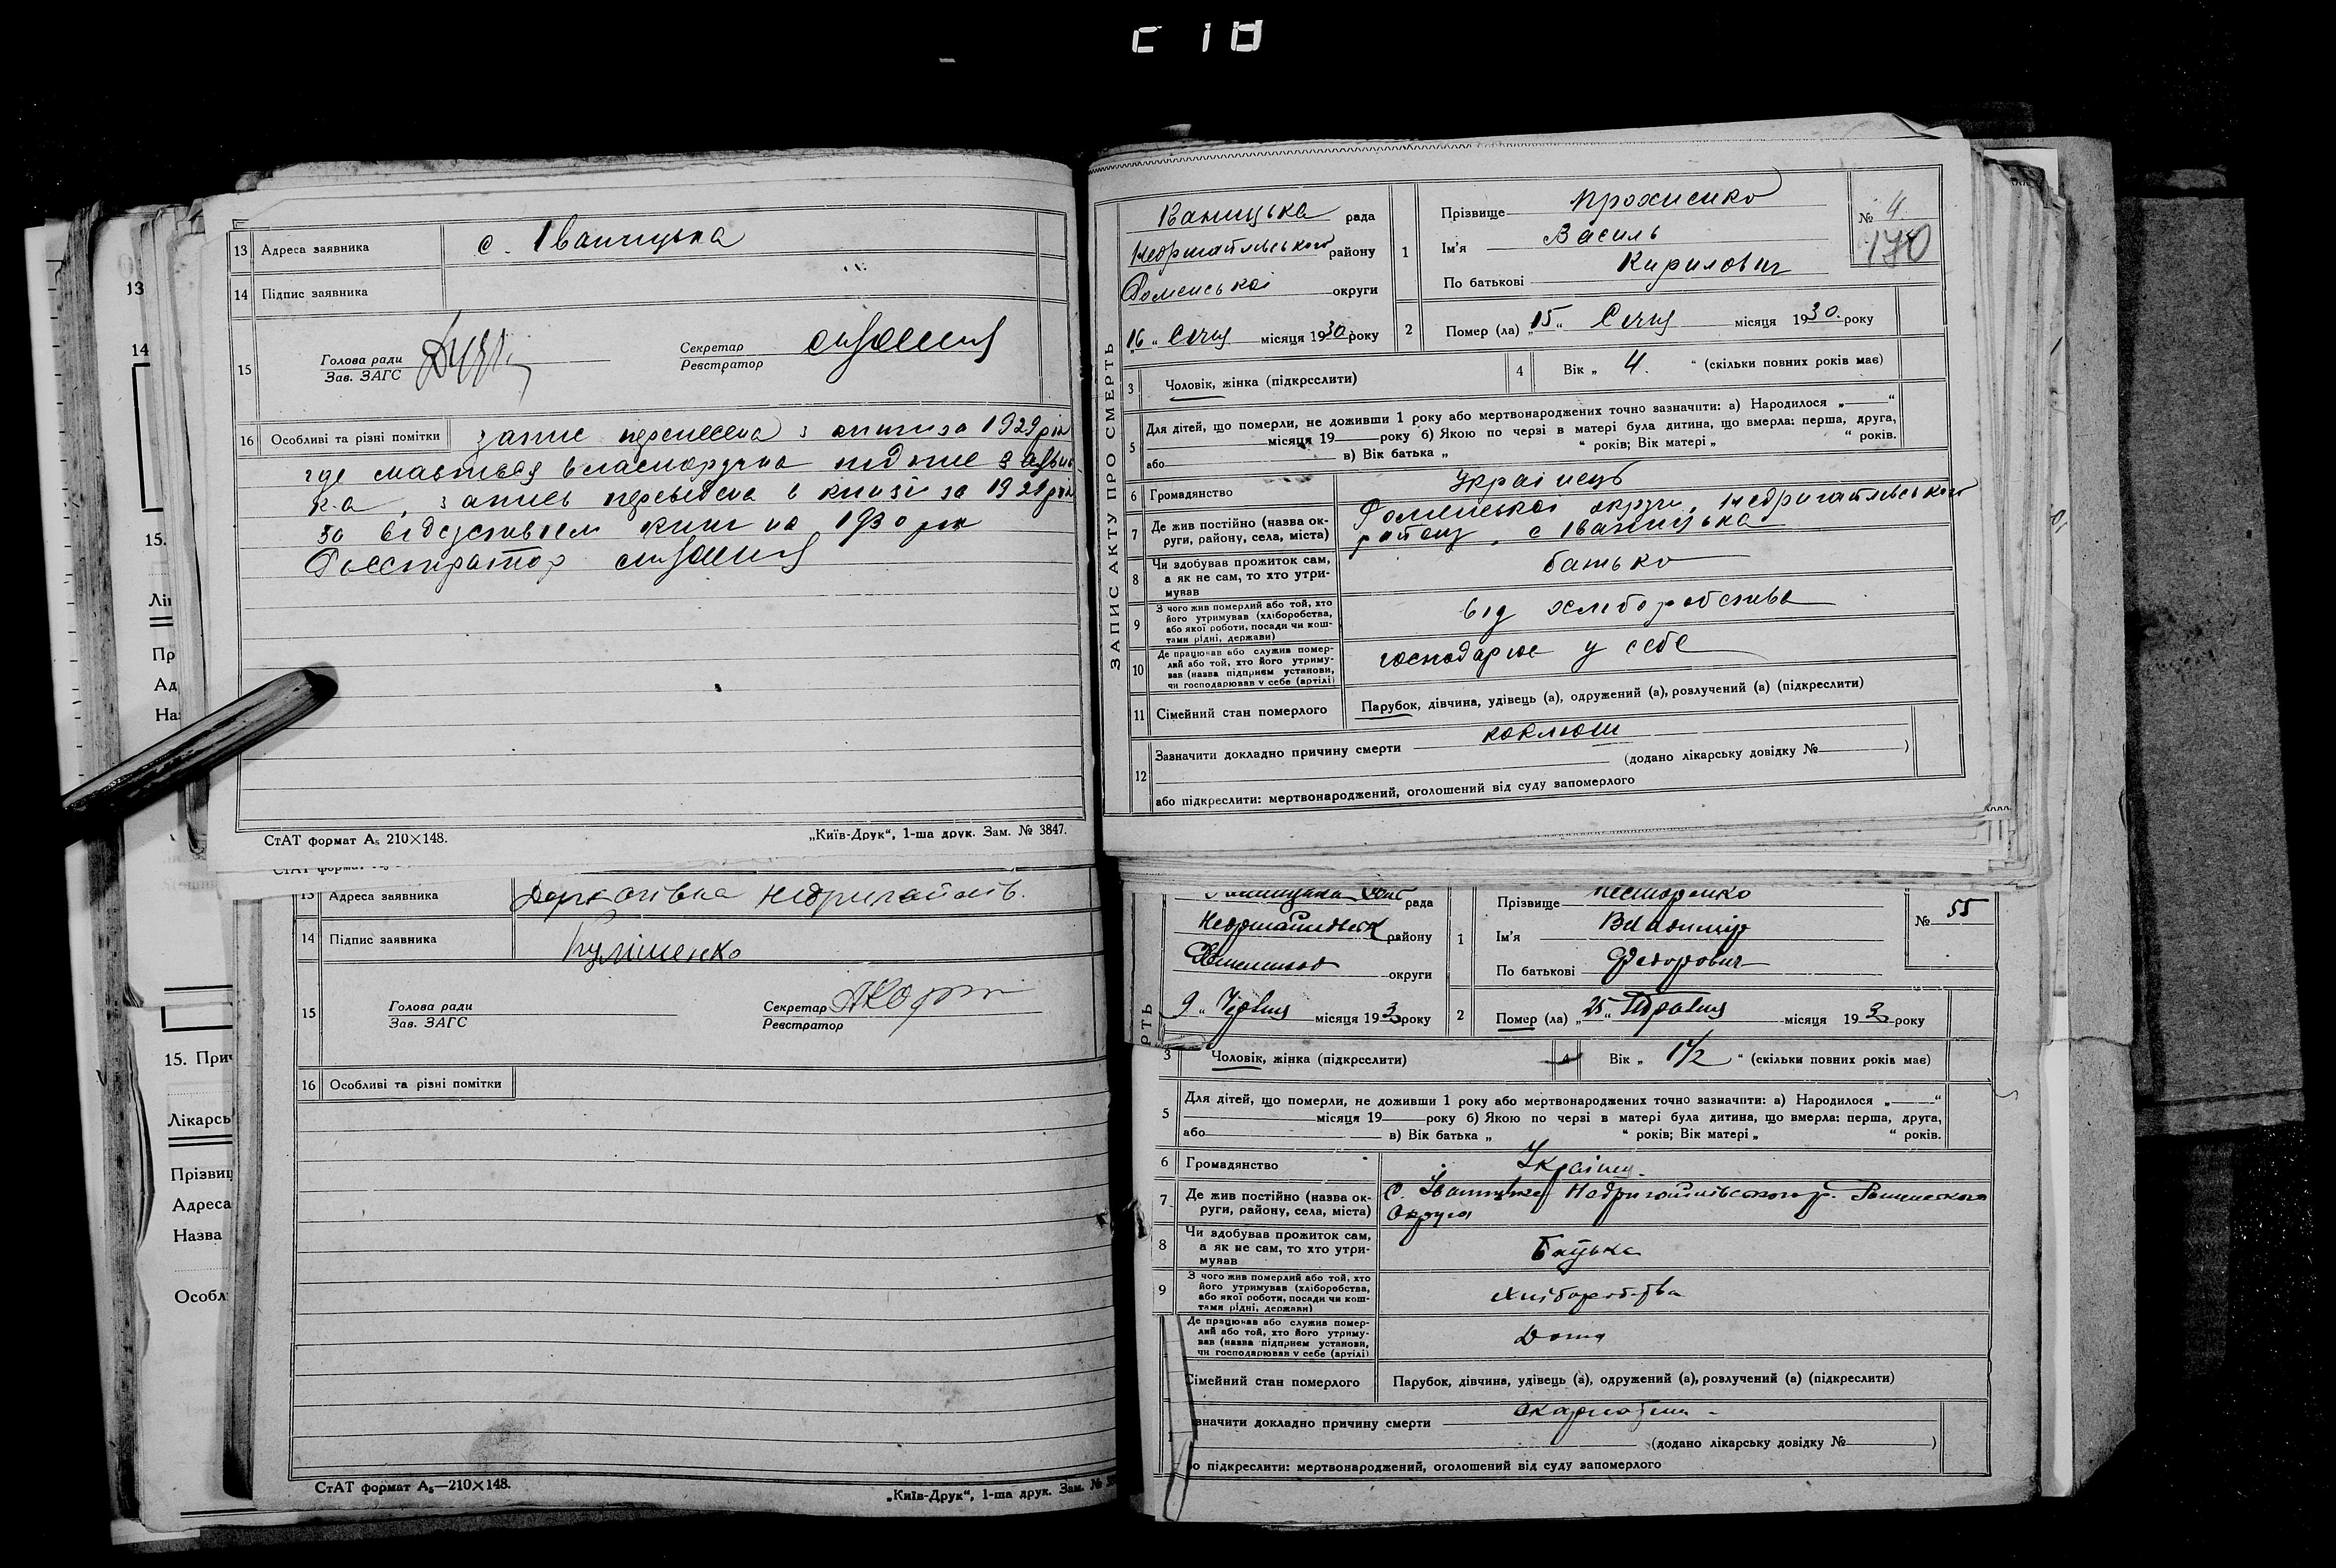 13 Адреса заявника с. Іваницька
14 Підпис заявника
15 Голова ради
Зав. ЗАГС
Секретар
Реєстратор
16 Особливі та різні помітки запис перенесена з книги за 1929 рік
где мається власноручна підпис заявн
ка, запись переведена в книзі за 1929 рік
за відсутнвіем книг на 1930 рік
Реєстратор
СтАТ формат А₅ 210×148. „Київ-Друк“, 1-ша друк. Зам. № 3847.
ЗАПИС АКТУ ПРО СМЕРТЬ
Іваницька рада
Недригайлівського району
Роменської округи
„16“ Січня місяця 1930 року
1 Прізвище Прохиенко
Ім'я Василь
По батькові Кирилович
№ 4
170
2 Помер (ла) „15“ Січня місяця 1930. року
3 Чоловік, жінка (підкреслити)
4 Вік „ 4. “ (скільки повних років має)
5 Для дітей, що померли, не доживши 1 року або мертвонароджених точно зазначити: а) Народилося „ “
місяця 19 року б) Якою по черзі в матері була дитина, що вмерла: перша, друга,
або в) Вік батька „ “ років; Вік матері „ “ років.
6 Громадянство Українець
7 Де жив постійно (назва ок-
руги, району, села, міста)
Роменської округи, Недригайлівського
району, с Іваницька
8 Чи здобував прожиток сам,
а як не сам, то хто утри-
мував
батько
9 З чого жив померлий або той, хто
його утримував (хліборобства,
або якої роботи, посади чи кош-
тами рідні, держави)
від хліборобства
10 Де працював або служив помер-
лий або той, хто його утриму-
вав (назва підприєм установи,
чи господарював у себе (артілі)
господарює у себе
11 Сімейний стан померлого Парубок, дівчина, удівець (а), одружений (а), розлучений (а) (підкреслити)
12 Зазначити докладно причину смерти коклюш
(додано лікарську довідку № )
або підкреслити: мертвонароджений, оголошений від суду запомерлого
13 Адреса заявника Деркачівка Недригайлів.
14 Підпис заявника Кулішенко
15 Голова ради
Зав. ЗАГС
Секретар
Реєстратор
16 Особливі та різні помітки
СтАТ формат А₅—210×148. „Київ-Друк“, 1-ша друк. Зам. №
рада
Недригайлівськ району
округи
9 „ Червня місяця 193 року
1 Прізвище Нестеренко
Ім'я Владимир
По батькові Федорович
№ 55
2 Помер (ла) „25“ Травня місяця 193 року
3 Чоловік, жінка (підкреслити)
4 Вік „ 1½ “ (скільки повних років має)
5 Для дітей, що померли, не доживши 1 року або мертвонароджених точно зазначити: а) Народилося „ “
місяця 19 року б) Якою по черзі в матері була дитина, що вмерла: перша, друга,
або в) Вік батька „ “ років; Вік матері „ “ років.
6 Громадянство Українец
7 Де жив постійно (назва ок-
руги, району, села, міста)
С. Іваницька Недригайлівського р. Роменского
Округа
8 Чи здобував прожиток сам,
а як не сам, то хто утри-
мував
Батька
9 З чого жив померлий або той, хто
його утримував (хліборобства,
або якої роботи, посади чи кош-
тами рідні, держави)
Хліборобства
Де працював або служив помер-
лий або той, хто його утриму-
вав (назва підприєм установи,
чи господарював у себе (артілі)
Дома
Сімейний стан померлого Парубок, дівчина, удівець (а), одружений (а), розлучений (а) (підкреслити)
значити докладно причину смерти Скарлатина
(додано лікарську довідку № )
о підкреслити: мертвонароджений, оголошений від суду запомерлого
13
14
15.
Пр
Ад
На
15. Прич
Лікарсь
Прізвищ
Адреса
Назва
Особл